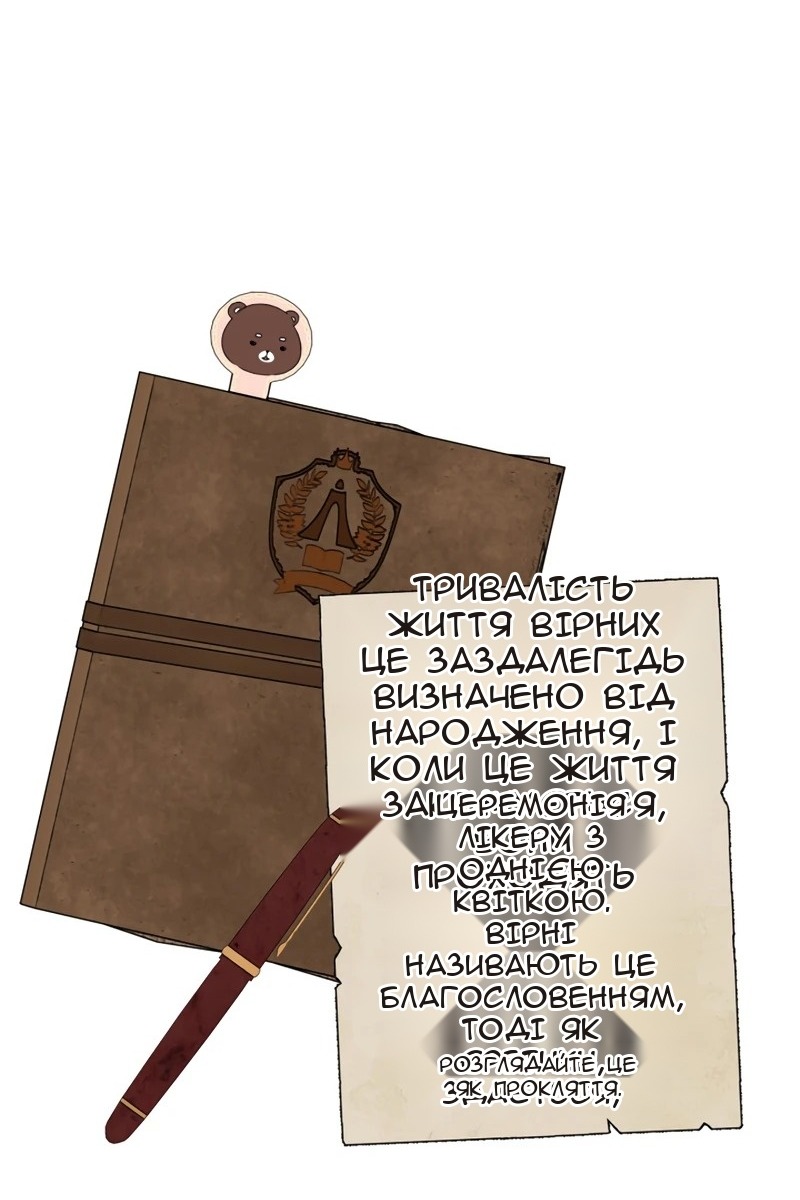 ТРИВАЛІСТЬ
ЖИТТЯ ВІРНИХ
ЦЕ ЗАЗДАЛЕГІДЬ
ВИЗНАЧЕНО ВІД
НАРОДЖЕННЯ, І
КОЛИ ЦЕ ЖИТТЯ
ЦЕРЕМОНІЯ
ЛІКЕРУ З
ОДНІЄЮ
КВІТКОЮ.
ВІРНІ
НАЗИВАЮТЬ ЦЕ
БЛАГОСЛОВЕННЯМ,
ТОДІ ЯК
РОЗГЛЯДАЙТЕ ЦЕ
ЯК ПРОКЛЯТТЯ